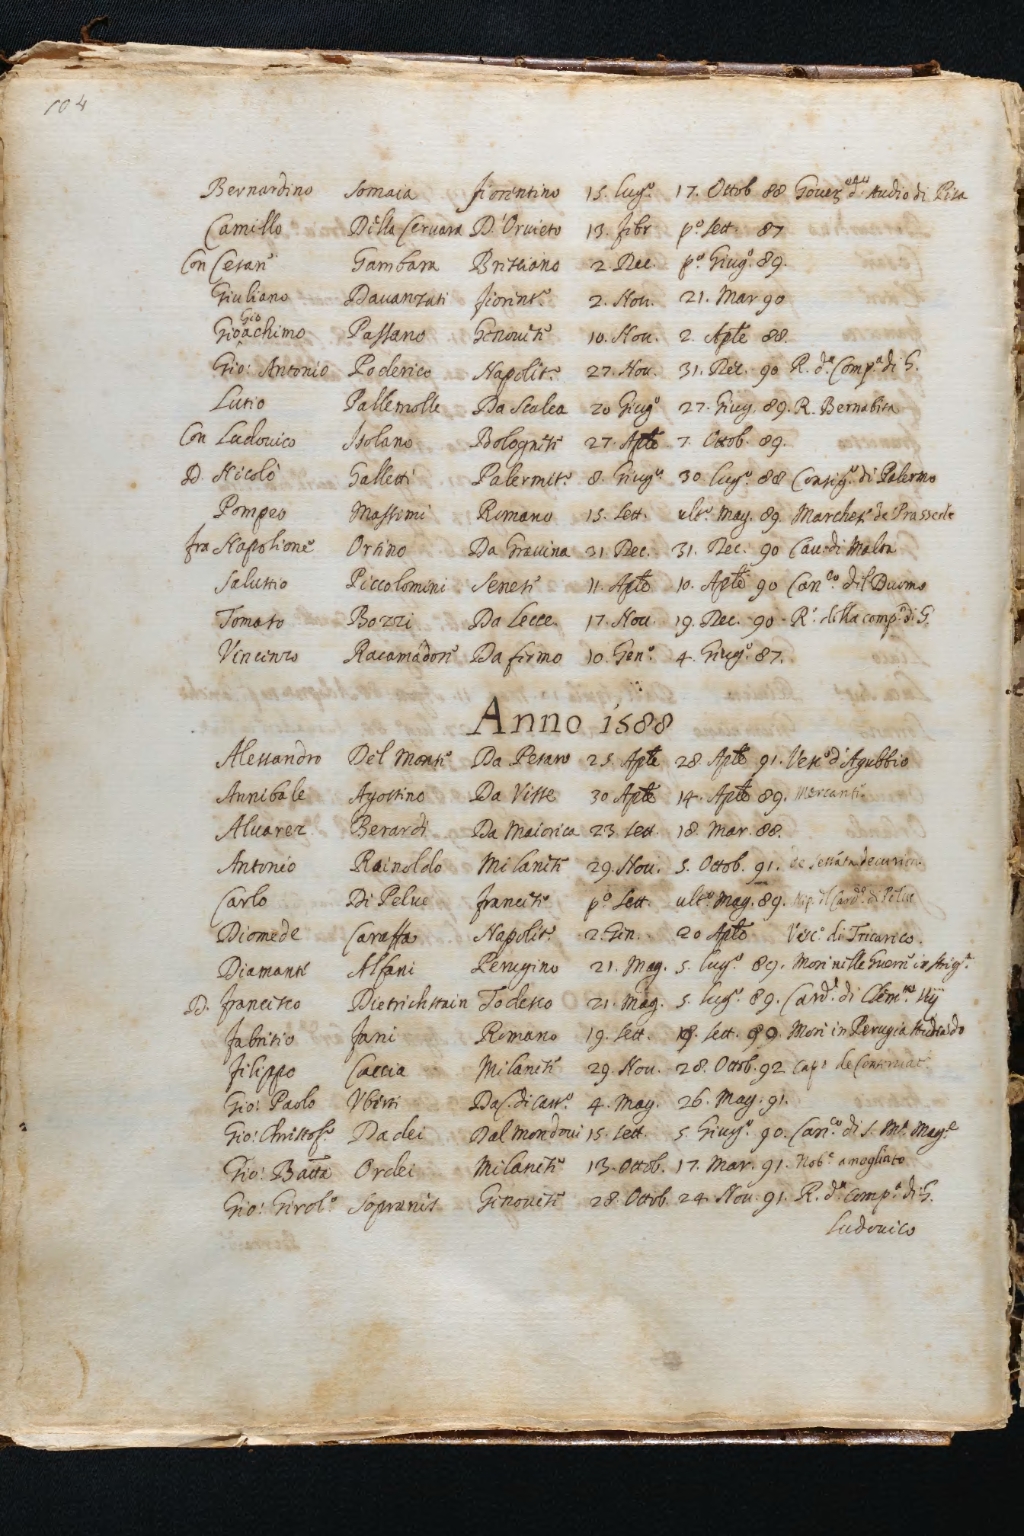 104
Bernardino Somaia fiorentino 15. lug.º 17. Ottob 88 studio di Pisa
Camillo Della Cervara D'Orvieto 13. febr pº sett. 87
Con Cesare Gambara Bresciano 2. Dec. pº Giugº. 89.
Giuliano Davanzati fiorent.º 2. Nov. 21. Mar 90
Gioachimo Passano Genovese 10. Nov. 2. Aple 88.
Gio: Antonio Poderico Napolit.º 27. Nov. 31. Dec. 90 R. dª Compª di G.
Lutio Pallemolle Da Scalea 20 Giugº 27. Giug. 89. R. Bernabita
Con Ludovico Isolano Bolognese 27. Aple 7. Ottob. 89.
D. Nicolò Galletti Palermit.º 8. Giugº 30. lugº. 88 Consig.º di Palermo
Pompeo Massimi Romano 15. Sett. ultº. May. 89. Marchese de Prassede
fra Napolione Orsino Da Gravina 31. Dec. 31. Dec. 90 Cav. di Malta
Salustio Piccolomini Senese 11. Aple 10. Aple 90 Can.co del Duomo
Tomaso Bozzi Da Lecce 17. Nov 19. Dec. 90. R. della comp.ª di G.
Vincenzo Racamadore Da fermo 10. Genº. 4. Giugº. 87.
Anno 1588
Alessandro Del Monte Da Pesaro 25. Aple 28 Aple 91. Vescº d'Agubbio
Annibale Agostino Da Visse 30 Aple 14. Aple 89. Mercante.
Alvarez Berardi Da Maiorica 23. sett. 18. Mar. 88.
Antonio Rainoldo Milanese 29. Nov. 5. Ottob. 91.
Carlo Di Pelue francese pº Sett. ultº. Mag. 89. Nip. il Card.e di Pelue
Diomede Caraffa Napolit.º 2. Gen. 20 Aple Vesc.º di Tricarico.
Diamante Alfani Perugino 21. Mag. 5. lugº. 89. Morì nelle Guerre in Strig.ª
D. francesco Dietrichstain Todesco 21. Mag. 5. lugº. 89. Card.e di Clem.te Viij
fabritio fani Romano 19. Sett. 18. Sett. 89. Morì in Perugia studiando
filippo Caccia Milanese 29. Nov. 28. Ottob. 92
Gio: Paolo Vberti Da C. di cast.º 4. May. 26. May. 91.
Gio: Christof.º Dadei Dal Mondovi 15. Sett. 5. Giugº. 90. Can.co di S. Mª. Mag.e
Gio: Batta Ordei Milanese 13. Ottob. 17. Mar. 91. Nob.e amogliato
Gio: Girol.º Sopranis Genovese 28. Ottob. 24. Nov. 91. R. dª comp.ª di G.
Ludovico